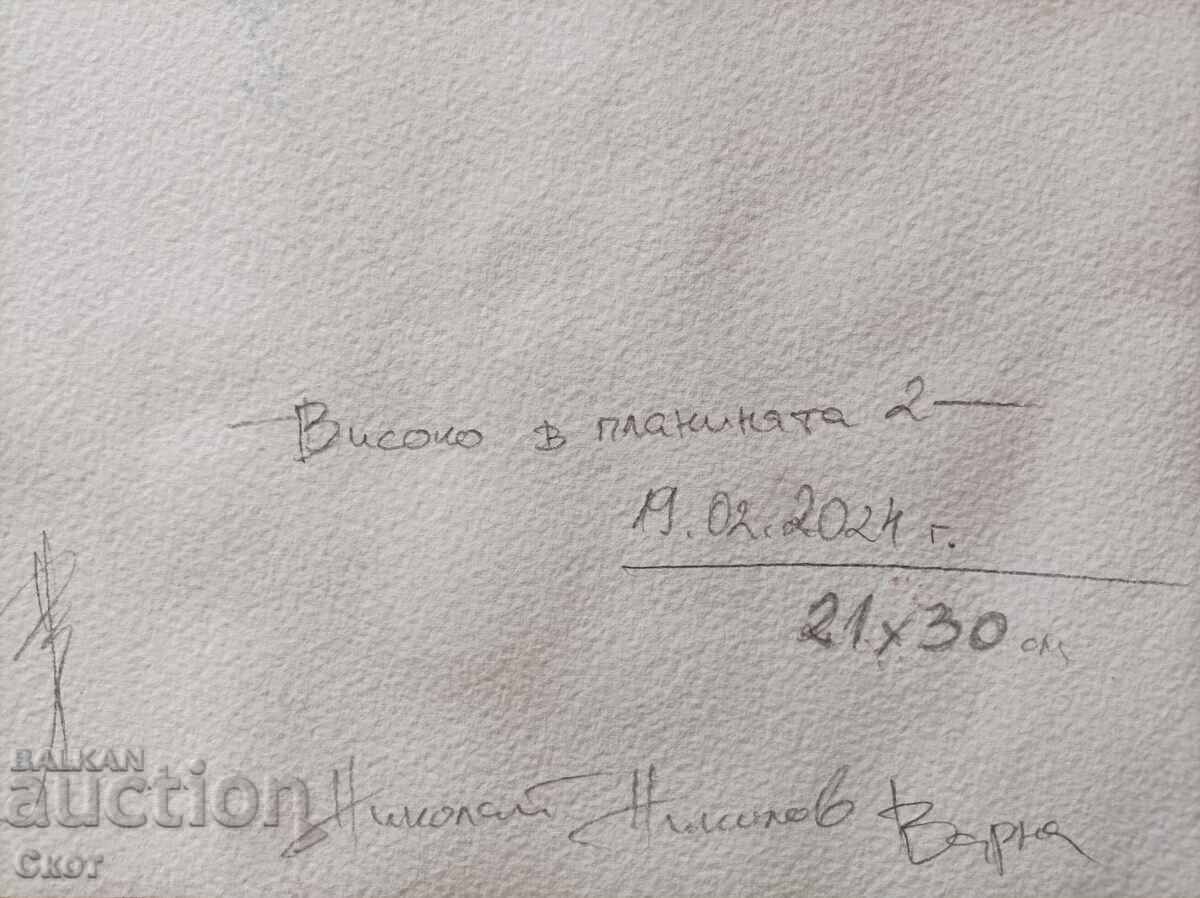 Високо в планината 2
19.02.2024 г.
21x30 см
Николай Николов Варна
BALKAN
auction
Скот